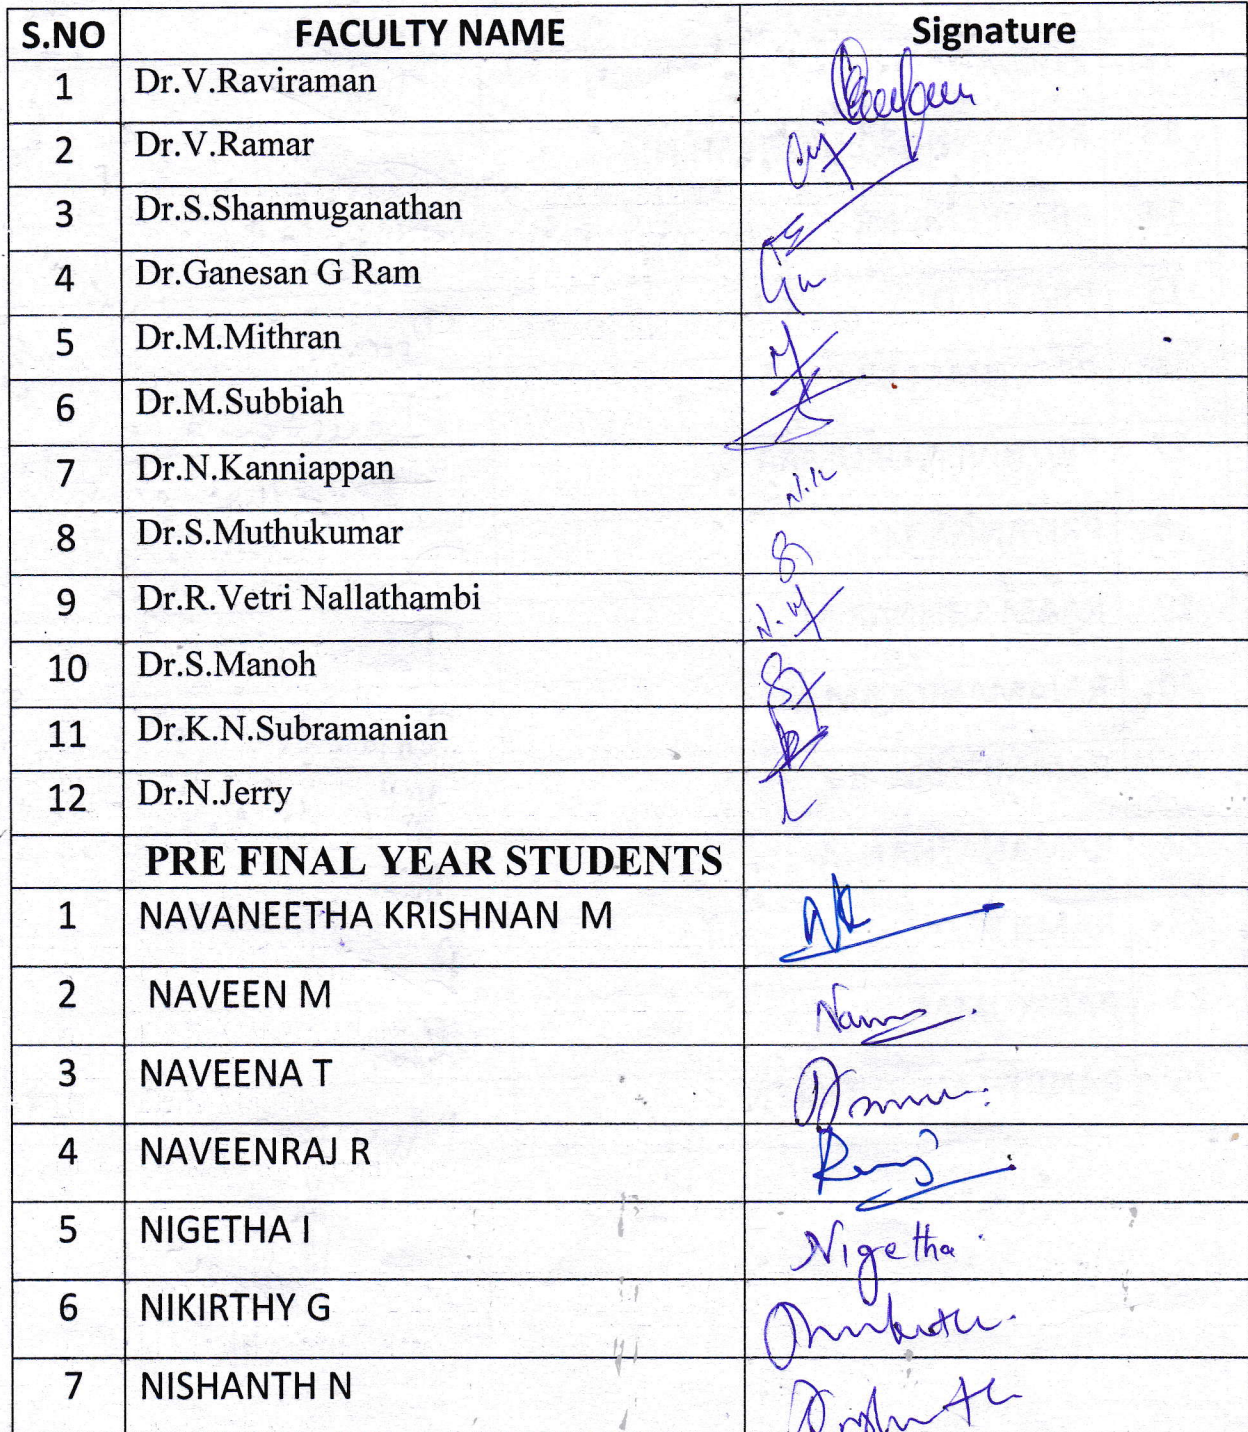 S.NO FACULTY NAME Signature
1 Dr.V.Raviraman
2 Dr.V.Ramar
3 Dr.S.Shanmuganathan
4 Dr.Ganesan G Ram
5 Dr.M.Mithran
6 Dr.M.Subbiah
7 Dr.N.Kanniappan N.K
8 Dr.S.Muthukumar
9 Dr.R.Vetri Nallathambi
10 Dr.S.Manoh
11 Dr.K.N.Subramanian
12 Dr.N.Jerry
PRE FINAL YEAR STUDENTS
1 NAVANEETHA KRISHNAN M
2 NAVEEN M
3 NAVEENA T
4 NAVEENRAJ R
5 NIGETHA I Nigetha
6 NIKIRTHY G
7 NISHANTH N